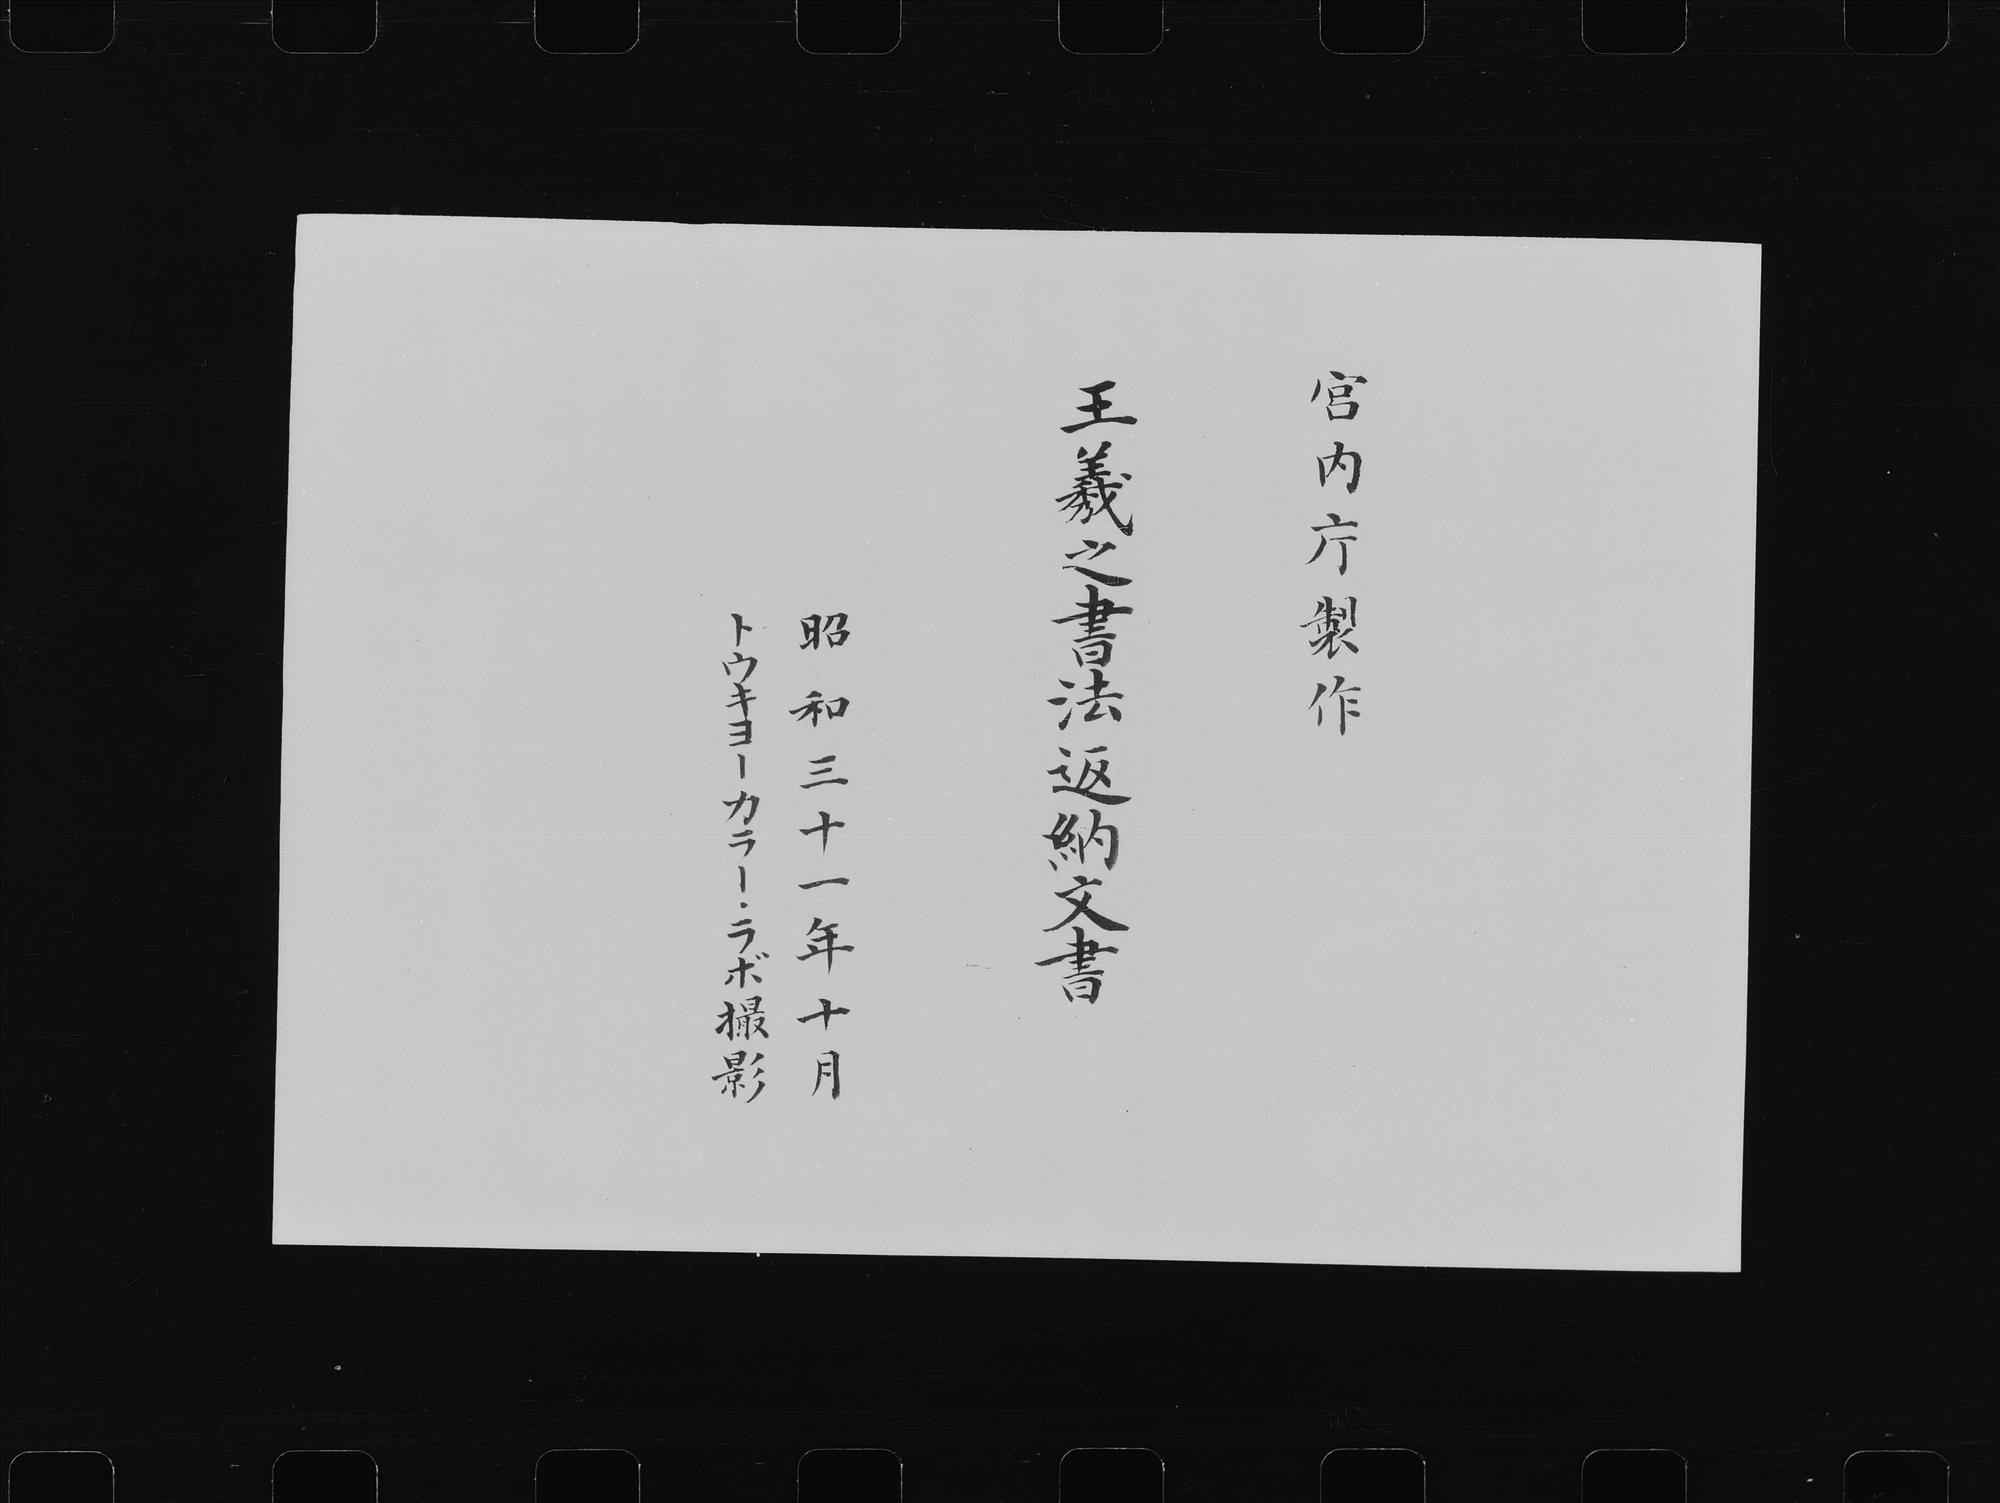 宮内庁製作
王羲之書法返納文書
昭和三十一年十月
トウキヨーカラー・ラボ撮影